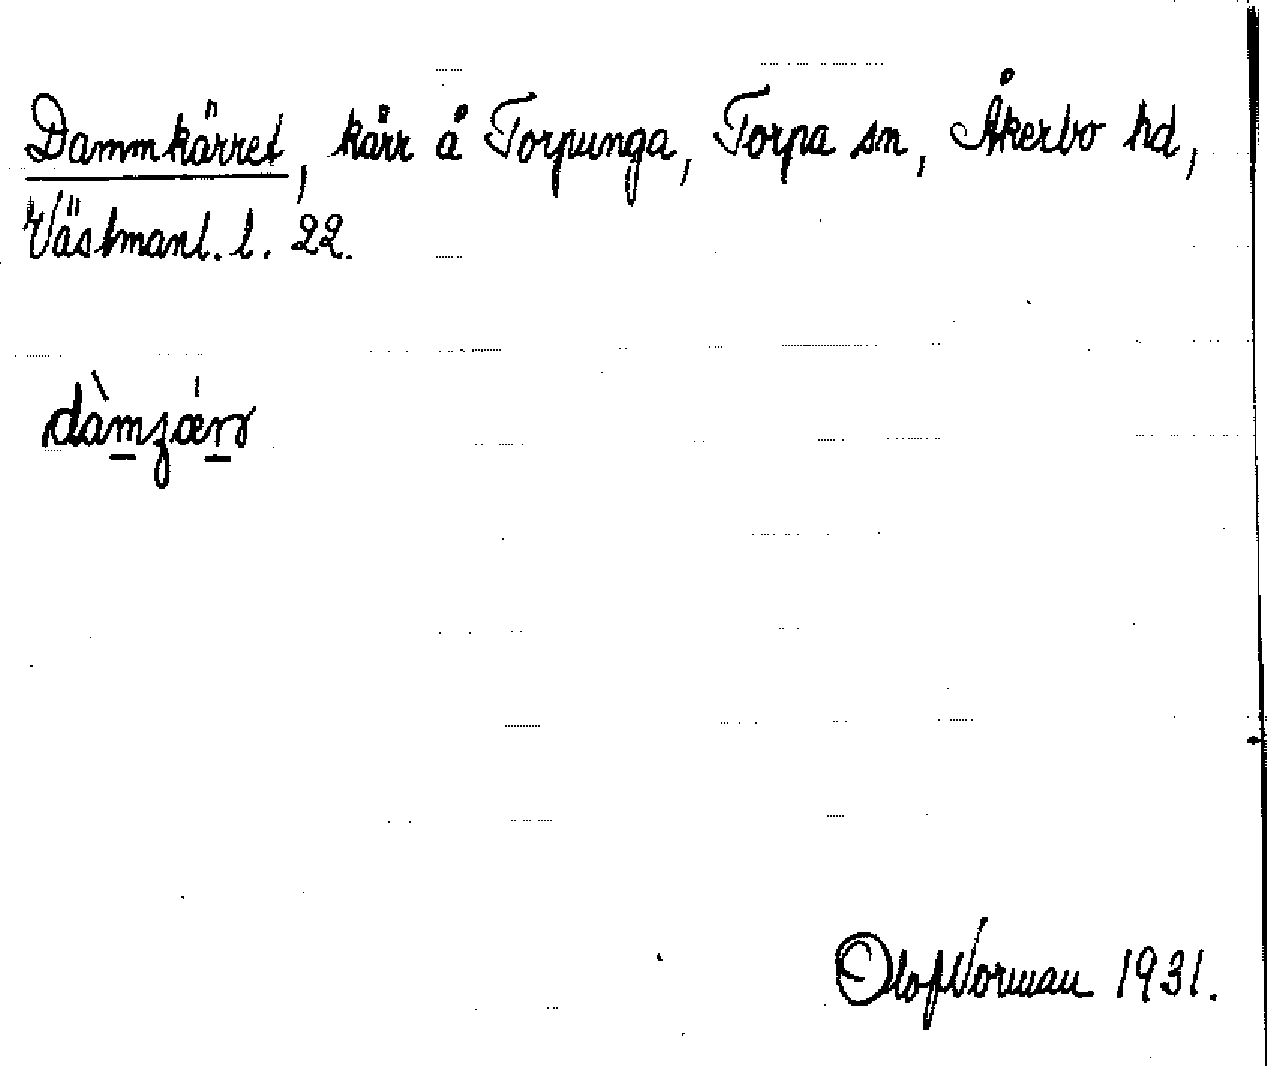 Dammkärret, kärr å Torpunga, Torpa sn, Åkerbo hd,
Västmanl. l. 22.
dàmʒǽrr
Olof Norman 1931.